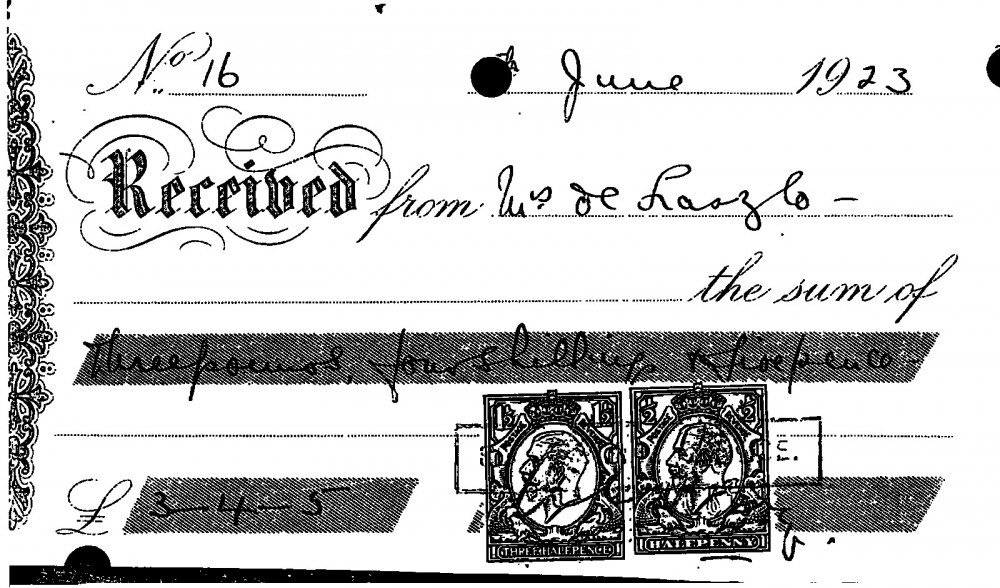 No. 16 June 1923
Received from Mrs de Laszlo -
the sum of
Three pounds, four shillings & fivepence -
1½ 1½ ½ ½
E.
£ 3-4-5
THREE HALFPENCE HALFPENNY